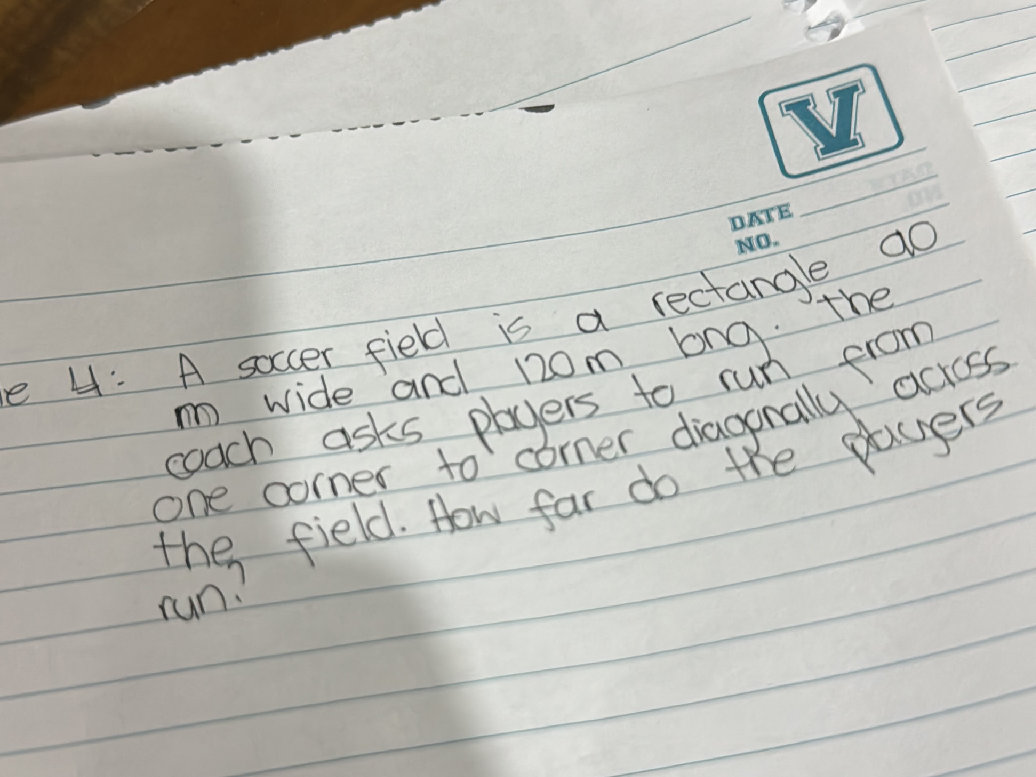 V
DATE
NO.
e 4: A soccer field is a rectangle 90
m wide and 120m long. The
coach asks players to run from
one corner to corner diagonally across
the field. How far do the players
run?